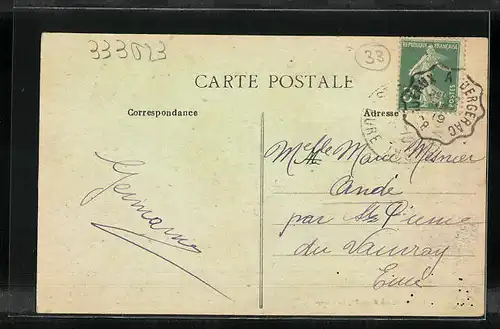 333023
33
REPUBLIQUE FRANÇAISE
POSTES
BERGERAC
CARTE POSTALE
Correspondance
Adresse
Melle Marie Mesnier
Andé
par St Pierre
du Vauvray
Eure
Germaine